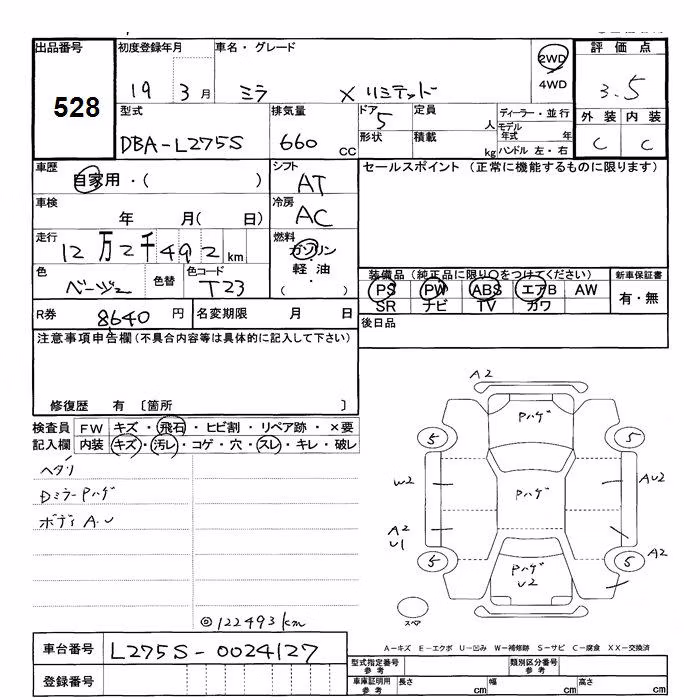 出品番号 初度登録年月 車名・グレード 2WD 4WD 評価点
528 19 3月 ミラ X リミテッド 3.5
型式 排気量 ドア 定員 ディーラー・並行 外装 内装
DBA-L275S 660 CC 5 人 モデル年式 年 C C
形状 積載 kg ハンドル 左・右
車歴 シフト セールスポイント (正常に機能するものに限ります)
自家用・( ) AT
車検 冷房
年 月( 日) AC
走行 燃料
12万2千492 km ガソリン
軽油
( )
色 色替 色コード 装備品 (純正品に限り〇をつけてください) 新車保証書
ベージュ T23 PS PW ABS エアB AW 有・無
SR ナビ TV カワ
R券 8640 円 名変期限 月 日 後日品
注意事項申告欄(不具合内容等は具体的に記入して下さい)
修復歴 有 〔箇所 〕
検査員 FW キズ・飛石・ヒビ割・リペア跡・×要
記入欄 内装 キズ・汚レ・コゲ・穴・スレ・キレ・破レ
ヘタリ
DミラーPハゲ
ボディ A.U
◎122493km
A2
Pハゲ
5 5
W2 Pハゲ AU2
A2
U1
5 5 A2
Pハゲ
U2
スペア
A-キズ E-エクボ U-凹み W-補修跡 S-サビ C-腐食 XX-交換済
車台番号 L275S-0024127
登録番号
型式指定番号 参考 類別区分番号 参考
車庫証明用 参考 長さ cm 幅 cm 高さ cm